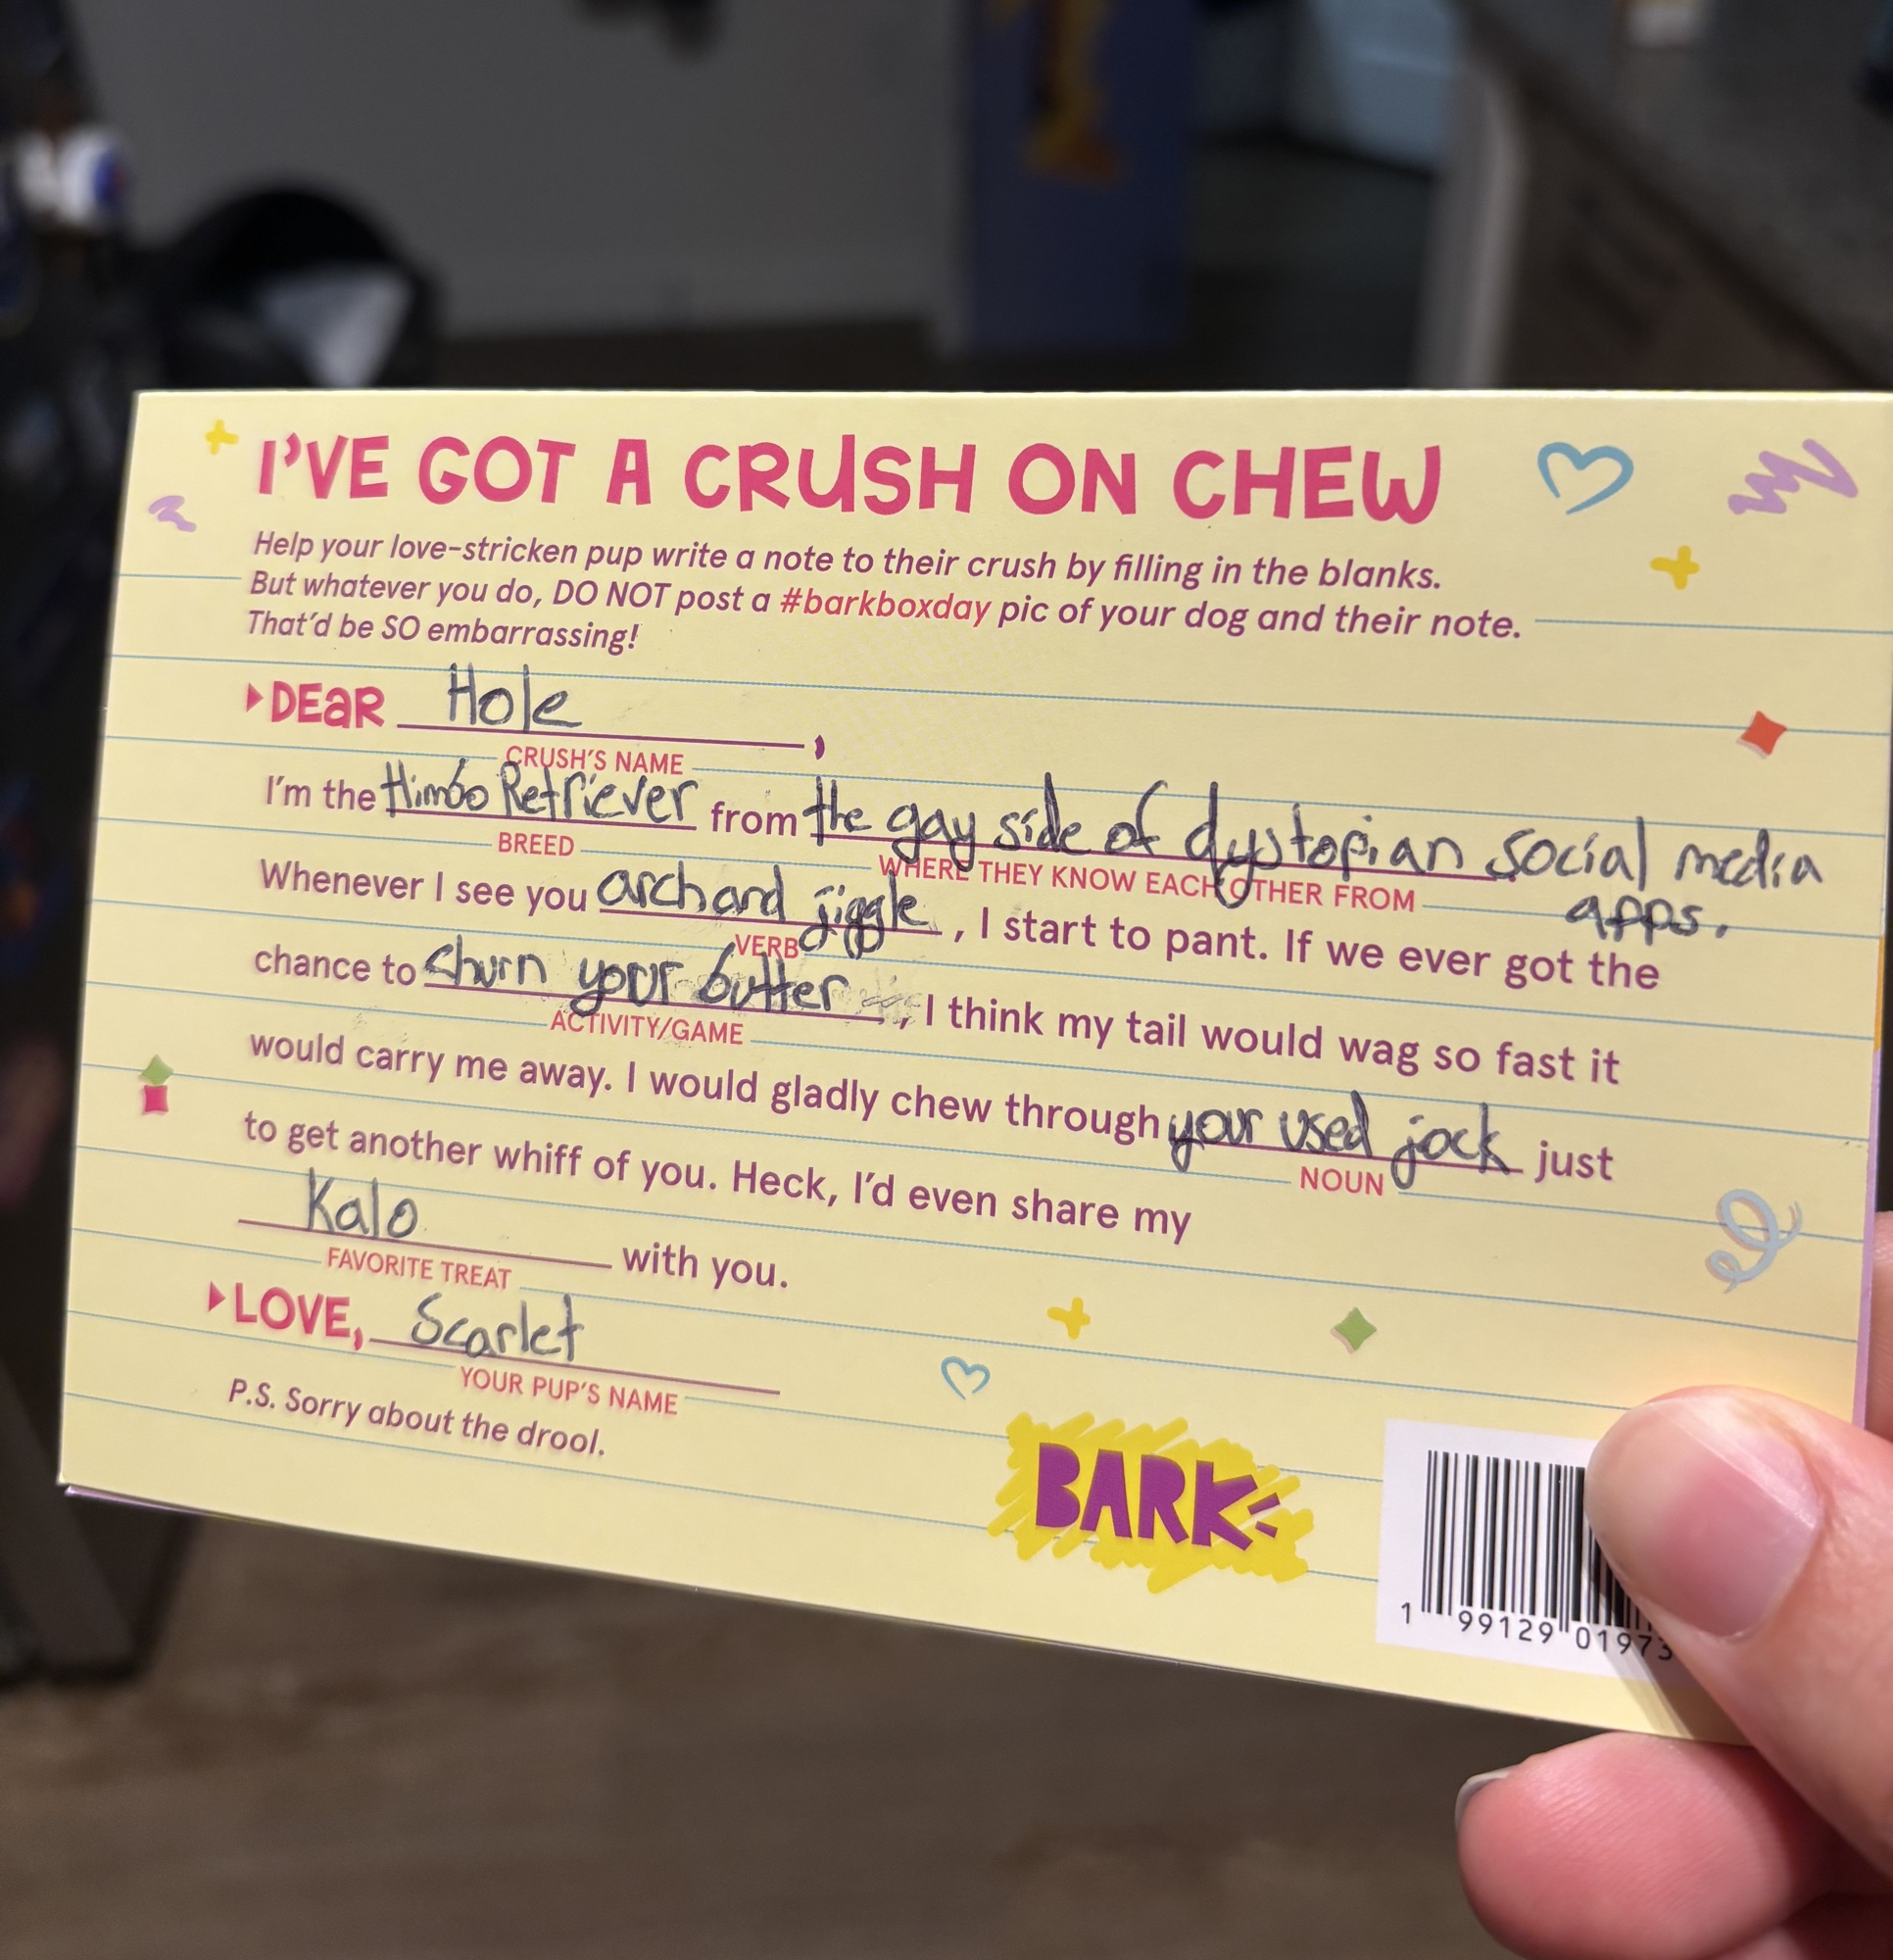 I'VE GOT A CRUSH ON CHEW
Help your love-stricken pup write a note to their crush by filling in the blanks.
But whatever you do, DO NOT post a #barkboxday pic of your dog and their note.
That'd be SO embarrassing!
DEAR Hole,
CRUSH'S NAME
I'm the Himbo Retriever from the gay side of dystopian social media
BREED WHERE THEY KNOW EACH OTHER FROM
apps.
Whenever I see you arch and jiggle, I start to pant. If we ever got the
VERB
chance to churn your butter, I think my tail would wag so fast it
ACTIVITY/GAME
would carry me away. I would gladly chew through your used jock just
NOUN
to get another whiff of you. Heck, I'd even share my
Kalo with you.
FAVORITE TREAT
LOVE, Scarlet
YOUR PUP'S NAME
P.S. Sorry about the drool.
BARK
1 99129 01973